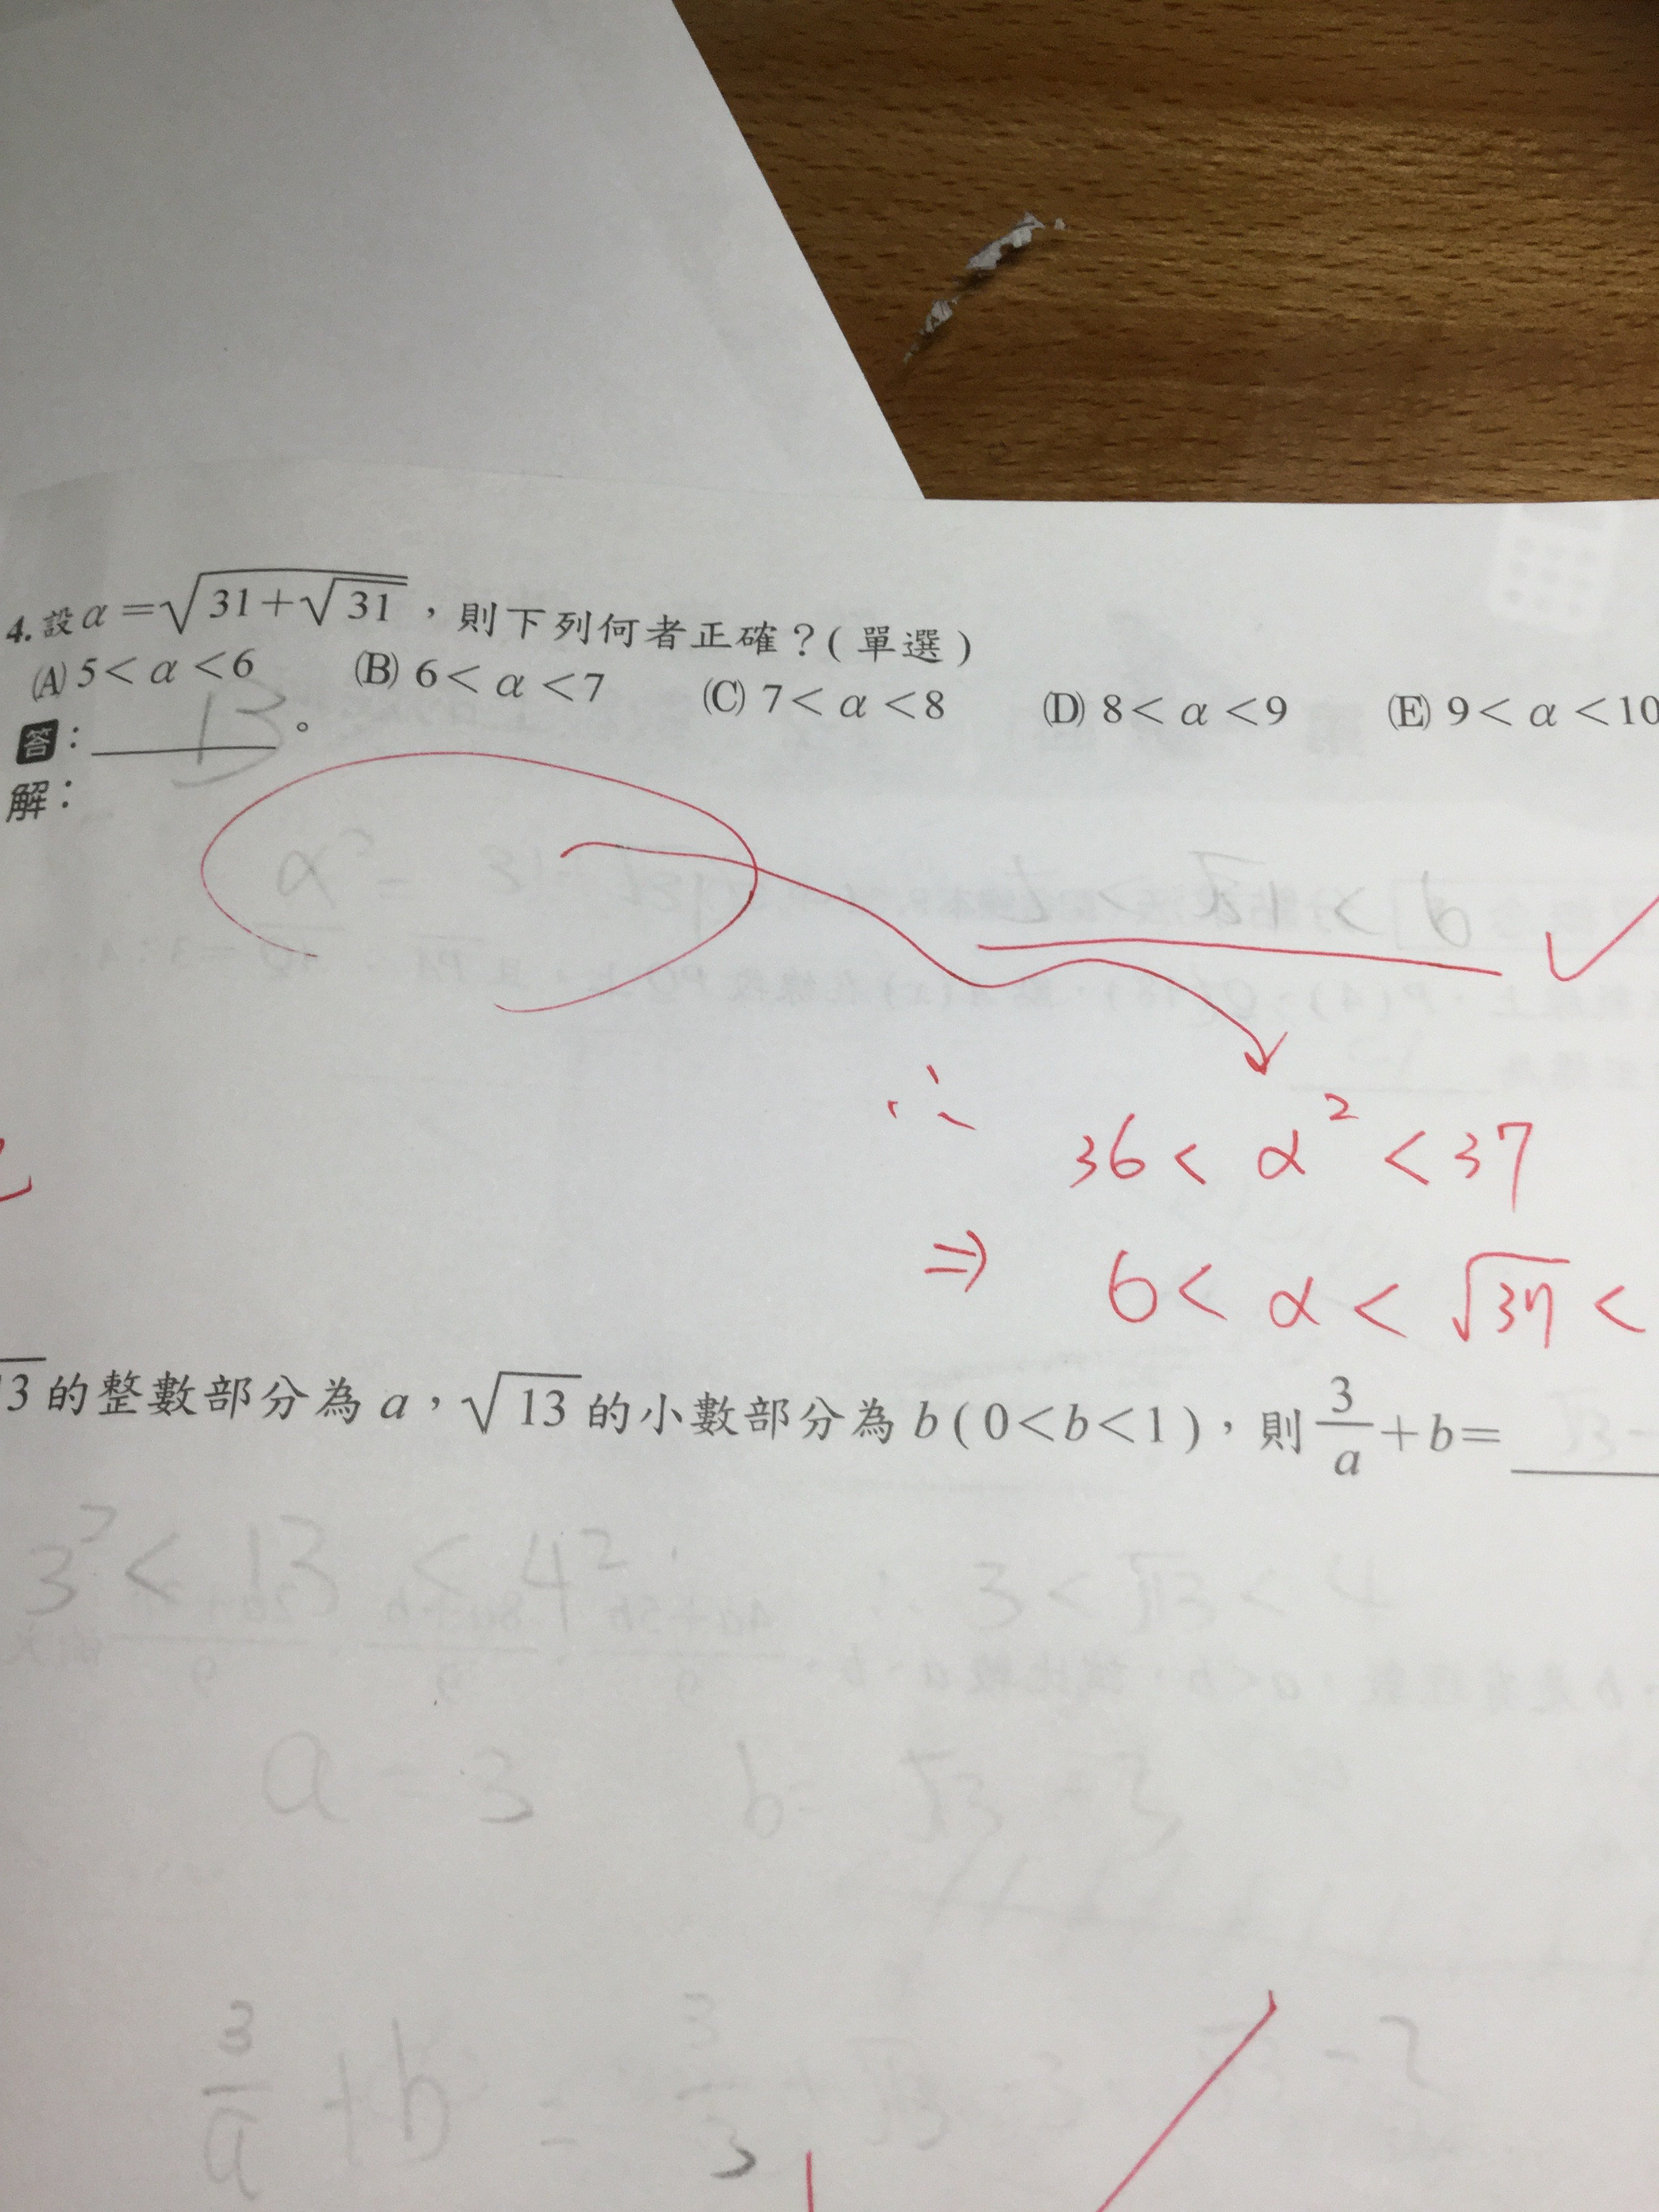 4. 設 α = √(31+√31) ，則下列何者正確？( 單選 )
(A) 5 < α < 6 (B) 6 < α < 7 (C) 7 < α < 8 (D) 8 < α < 9 (E) 9 < α < 10
答：。
解：
α² = 31
∴ 36 < α² < 37
⇒ 6 < α < √37 <
13 的整數部分為 a，√13 的小數部分為 b ( 0 < b < 1 )，則 3/a + b =
3² < 13 < 4² ∴ 3 < √13 < 4
a = 3 b = √13 - 3
3/a + b = 3/3 + √13 - 3 √13 - 2